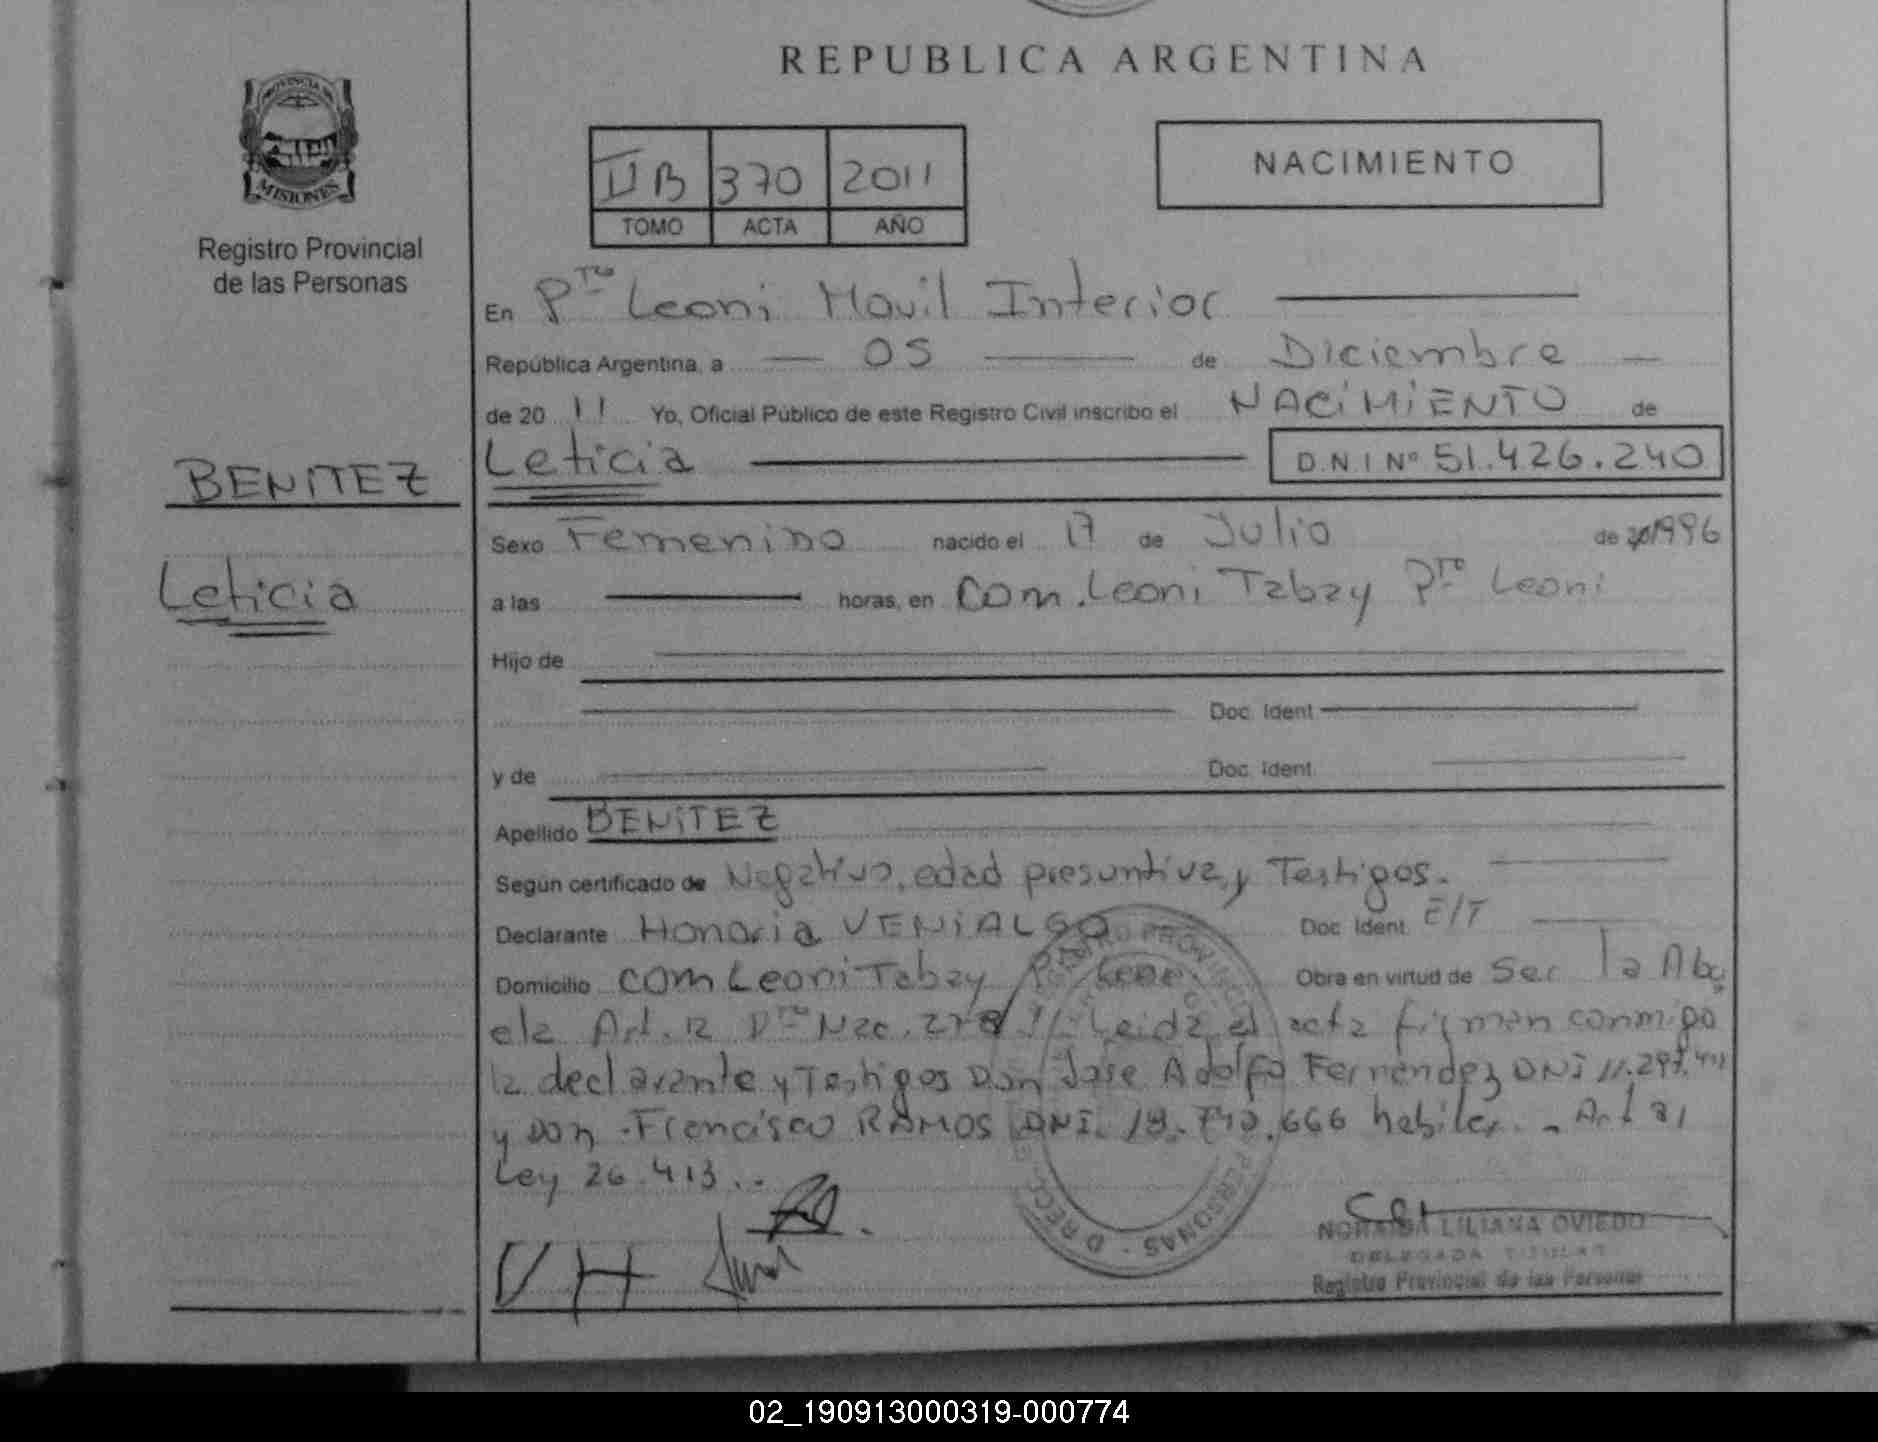 REPUBLICA ARGENTINA
PROVINCIA DE
MISIONES
Registro Provincial
de las Personas
II B 370 2011
TOMO ACTA AÑO
NACIMIENTO
En Pto Leoni Movil Interior
República Argentina, a 05 de Diciembre
de 20 11 Yo, Oficial Público de este Registro Civil inscribo el NACIMIENTO de
BENITEZ
Leticia D.N.I Nº 51.426.240
Sexo Femenino nacido el 17 de Julio de 1996
Leticia
a las horas, en Com. Leoni Tabay Pto Leoni
Hijo de
Doc. Ident
y de Doc. Ident
Apellido BENITEZ
Según certificado de Negativo, edad presuntiva, y Testigos.
Declarante Honoria VENIALGO Doc. Ident. E/T
Domicilio Com Leoni Tabay Pto Obra en virtud de Ser la Abu
ela Art. 12 Dto Nac. 278/11 Leida el acta firman conmigo
la declarante y Testigos Don Jose Adolfo Fernandez DNI 11.297.
y Don Francisco RAMOS DNI. .666 habiles. - Art 81
Ley 26.413..
REGISTRO PROVINCIAL
PERSONAS
VH
NORAIDA LILIANA OVIEDO
DELEGADA TITULAR
Registro Provincial de las Personas
02_190913000319-000774